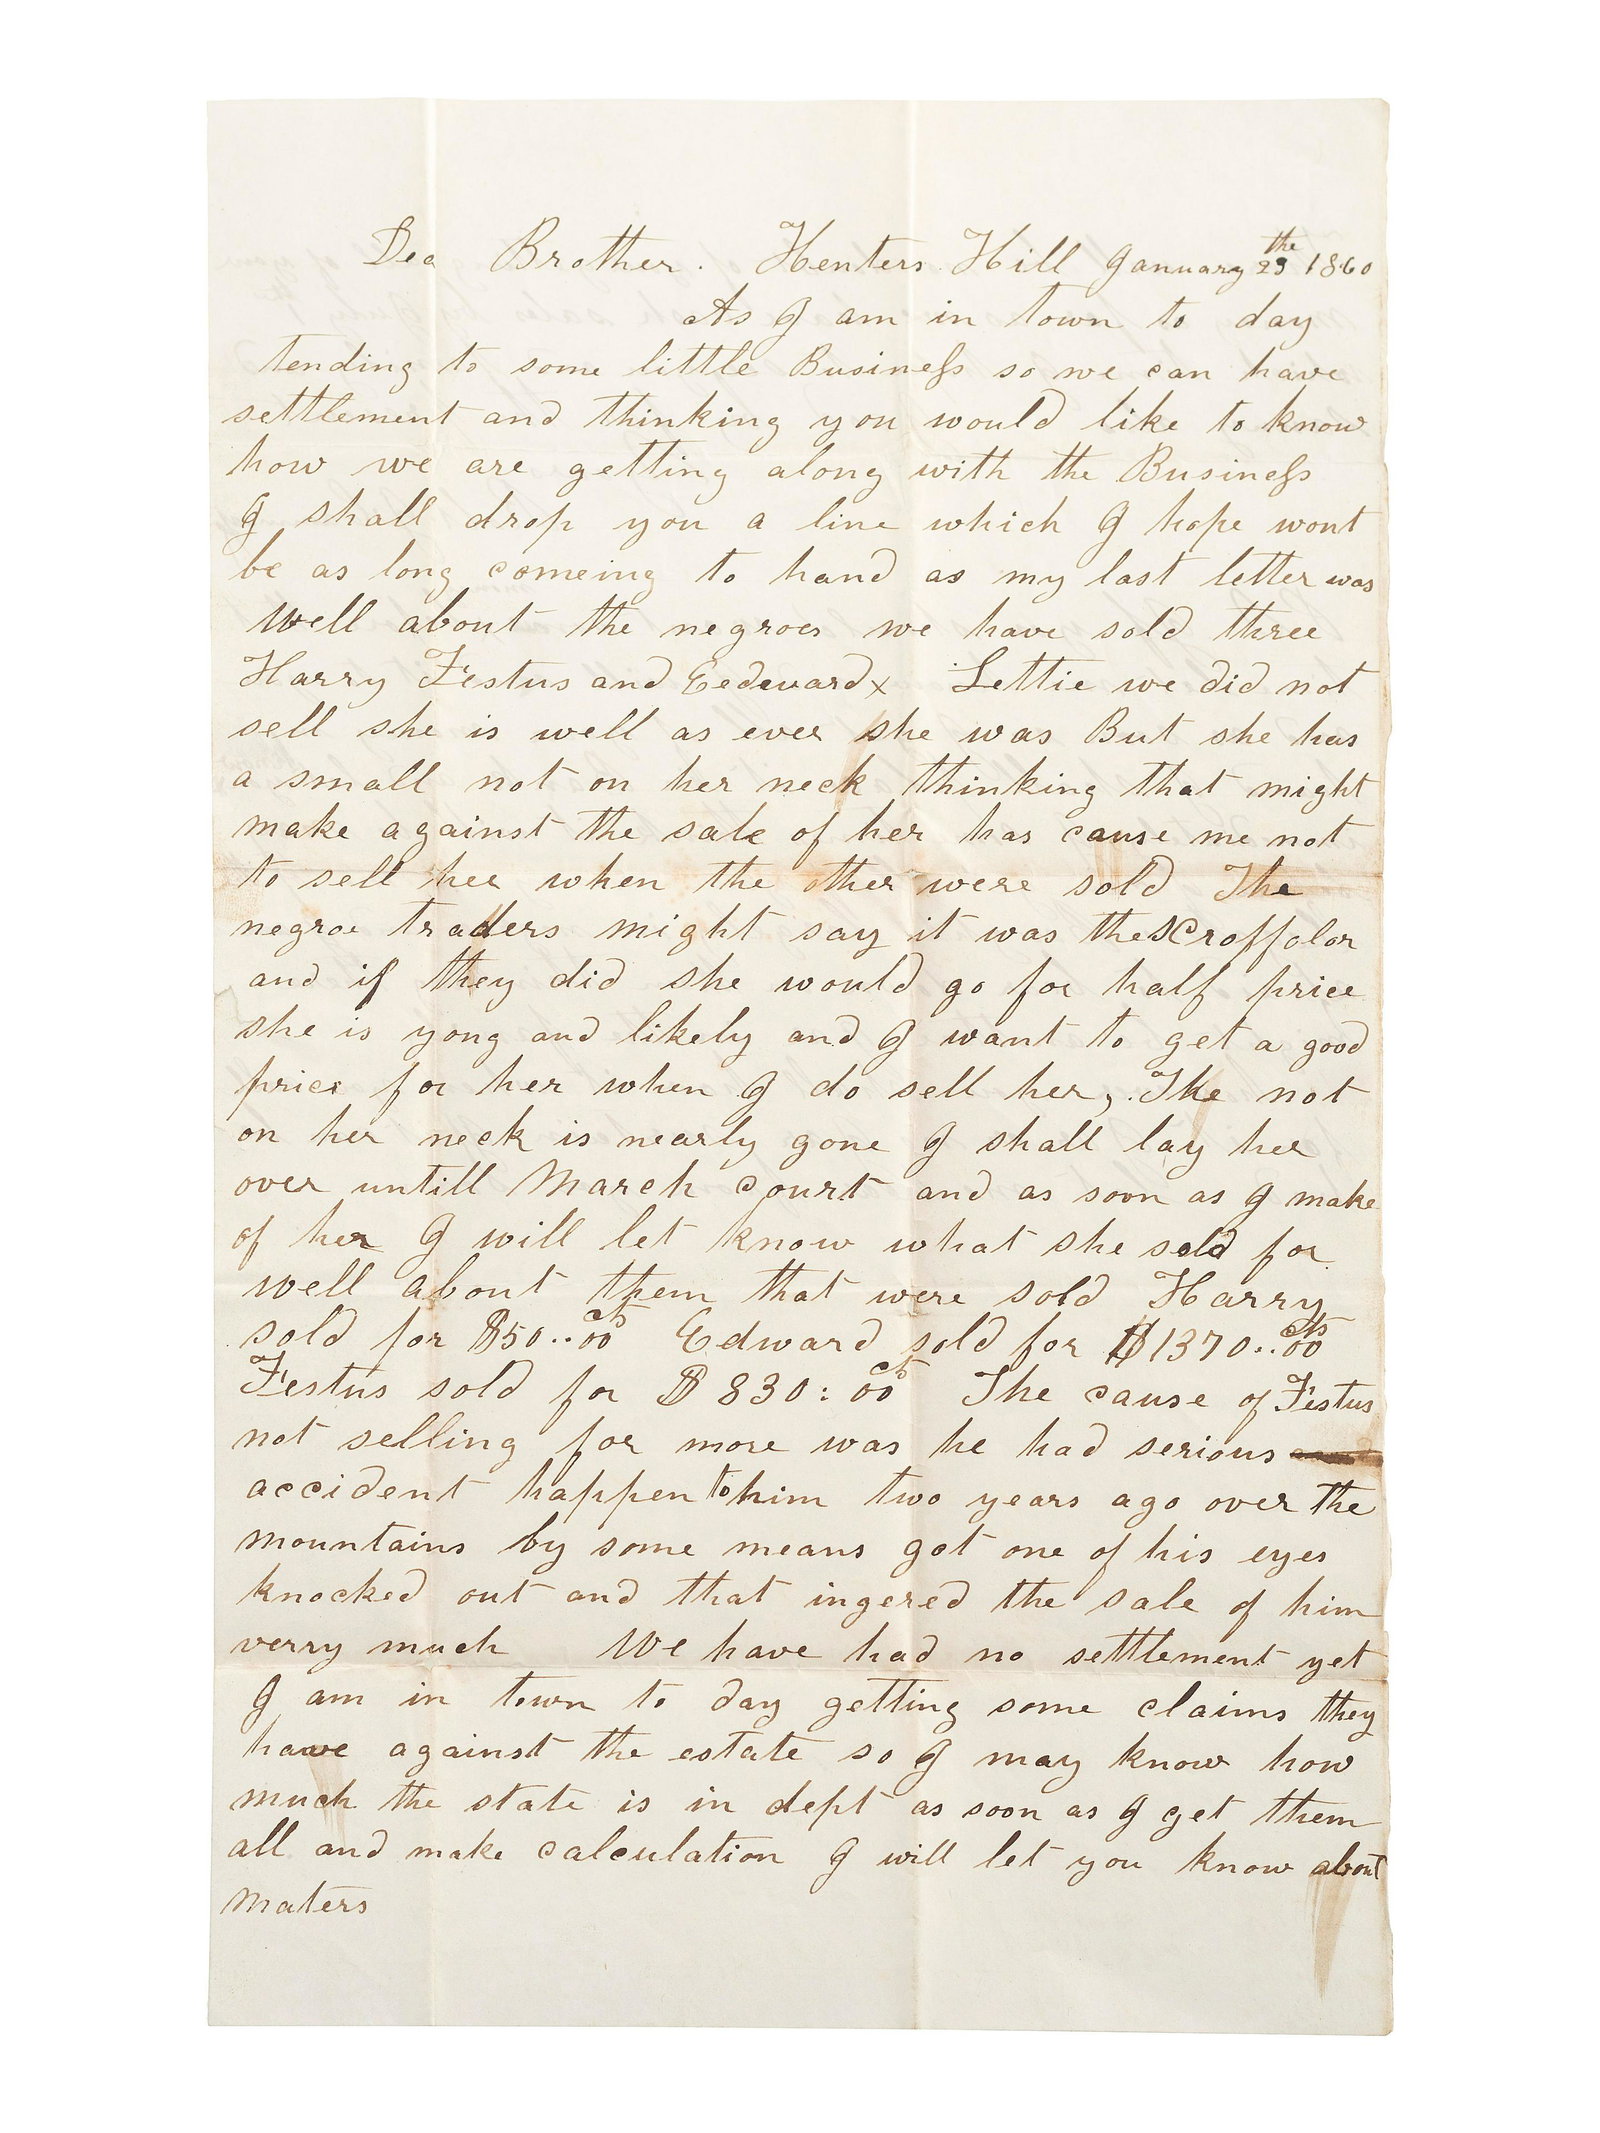 Dea Brother. Henters Hill January 23 the 1860
As I am in town to day
tending to some little Business so we can have
settlement and thinking you would like to know
how we are getting along with the Business
I shall drop you a line which I hope wont
be as long comeing to hand as my last letter was
Well about the negroes we have sold three
Harry Festus and Eedward x Lettie we did not
sell she is well as ever she was But she has
a small not on her neck thinking that might
make against the sale of her has cause me not
to sell her when the other were sold The
negroe traders might say it was the scroffolor
and if they did she would go for half price
she is yong and likely and I want to get a good
price for her when I do sell her, The not
on her neck is nearly gone I shall lay her
over untill March court and as soon as I make
of her I will let know what she sold for
well about them that were sold Harry
sold for $50..00 cts Edward sold for $1370..00 cts
Festus sold for $830:00 cts The cause of Festus
not selling for more was he had serious
accident happen to him two years ago over the
mountains by some means got one of his eyes
knocked out and that ingered the sale of him
verry much We have had no settlement yet
I am in town to day getting some claims they
have against the estate so I may know how
much the state is in dept as soon as I get them
all and make calculation I will let you know about
maters